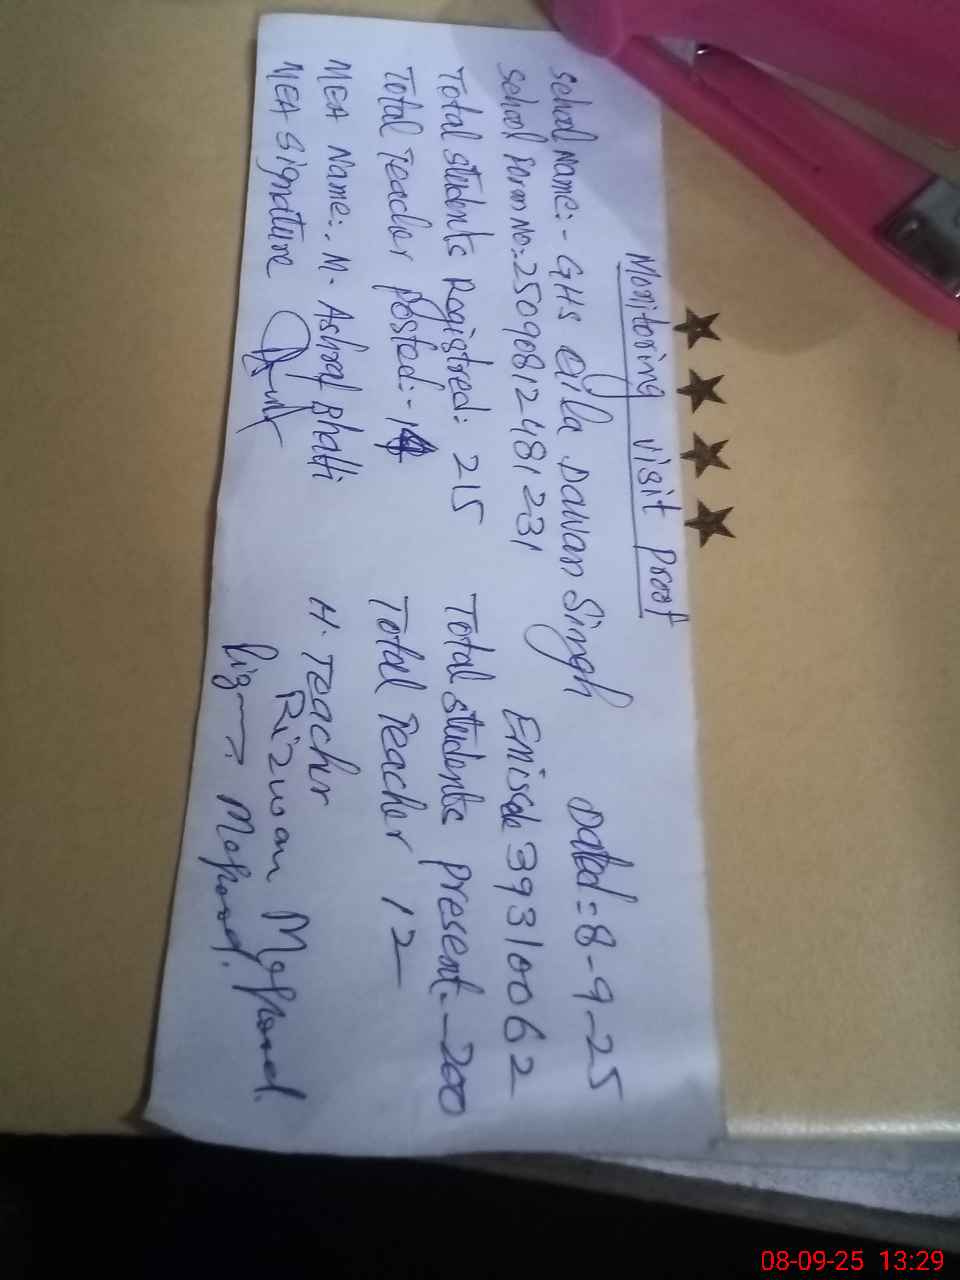 Monitoring visit Proof
School Name:- GHS Qila Dawan Singh Dated=8-9-25
School Form No:-2509081248 1231 Emiscode 39310062
Total students Registred: 215 Total students Present-200
Total Teacher Posted:-14 Total Teacher 12
MEA Name:. M. Ashraf Bhatti H. Teacher
MEA Signature Rizwan
08-09-25 13:29